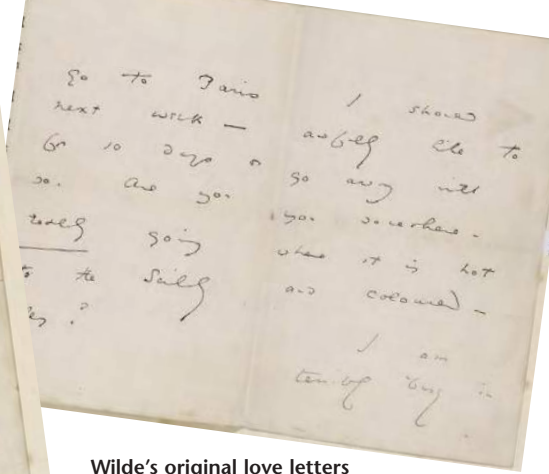 go to Paris
next week —
for 10 days or
so. Are you
really going
to the Scilly
I should
awfully like to
go away with
you somewhere –
where it is hot
and coloured –
I am
terribly busy in
Wilde's original love letters